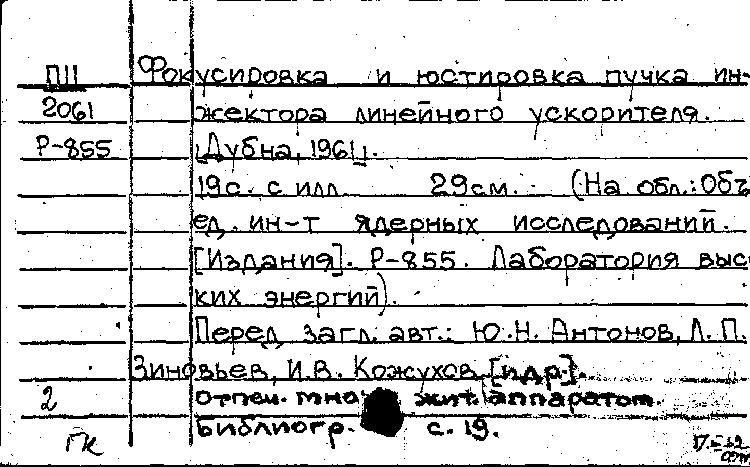 П11 Фокусировка и юстировка пучка ин-
2061 жектора линейного ускорителя.
Р-855 [Дубна, 1961].
19с. с илл. 29см. (На обл.: Объ
ед. ин-т ядерных исследований.
[Издания]. Р-855. Лаборатория высо
ких энергий).
Перед загл. авт.: Ю.Н. Антонов, Л.П.
Зиновьев, И.В. Кожухов [и др.].
2 Отпеч. множит. аппаратом.
ГК Библиогр. с. 19.